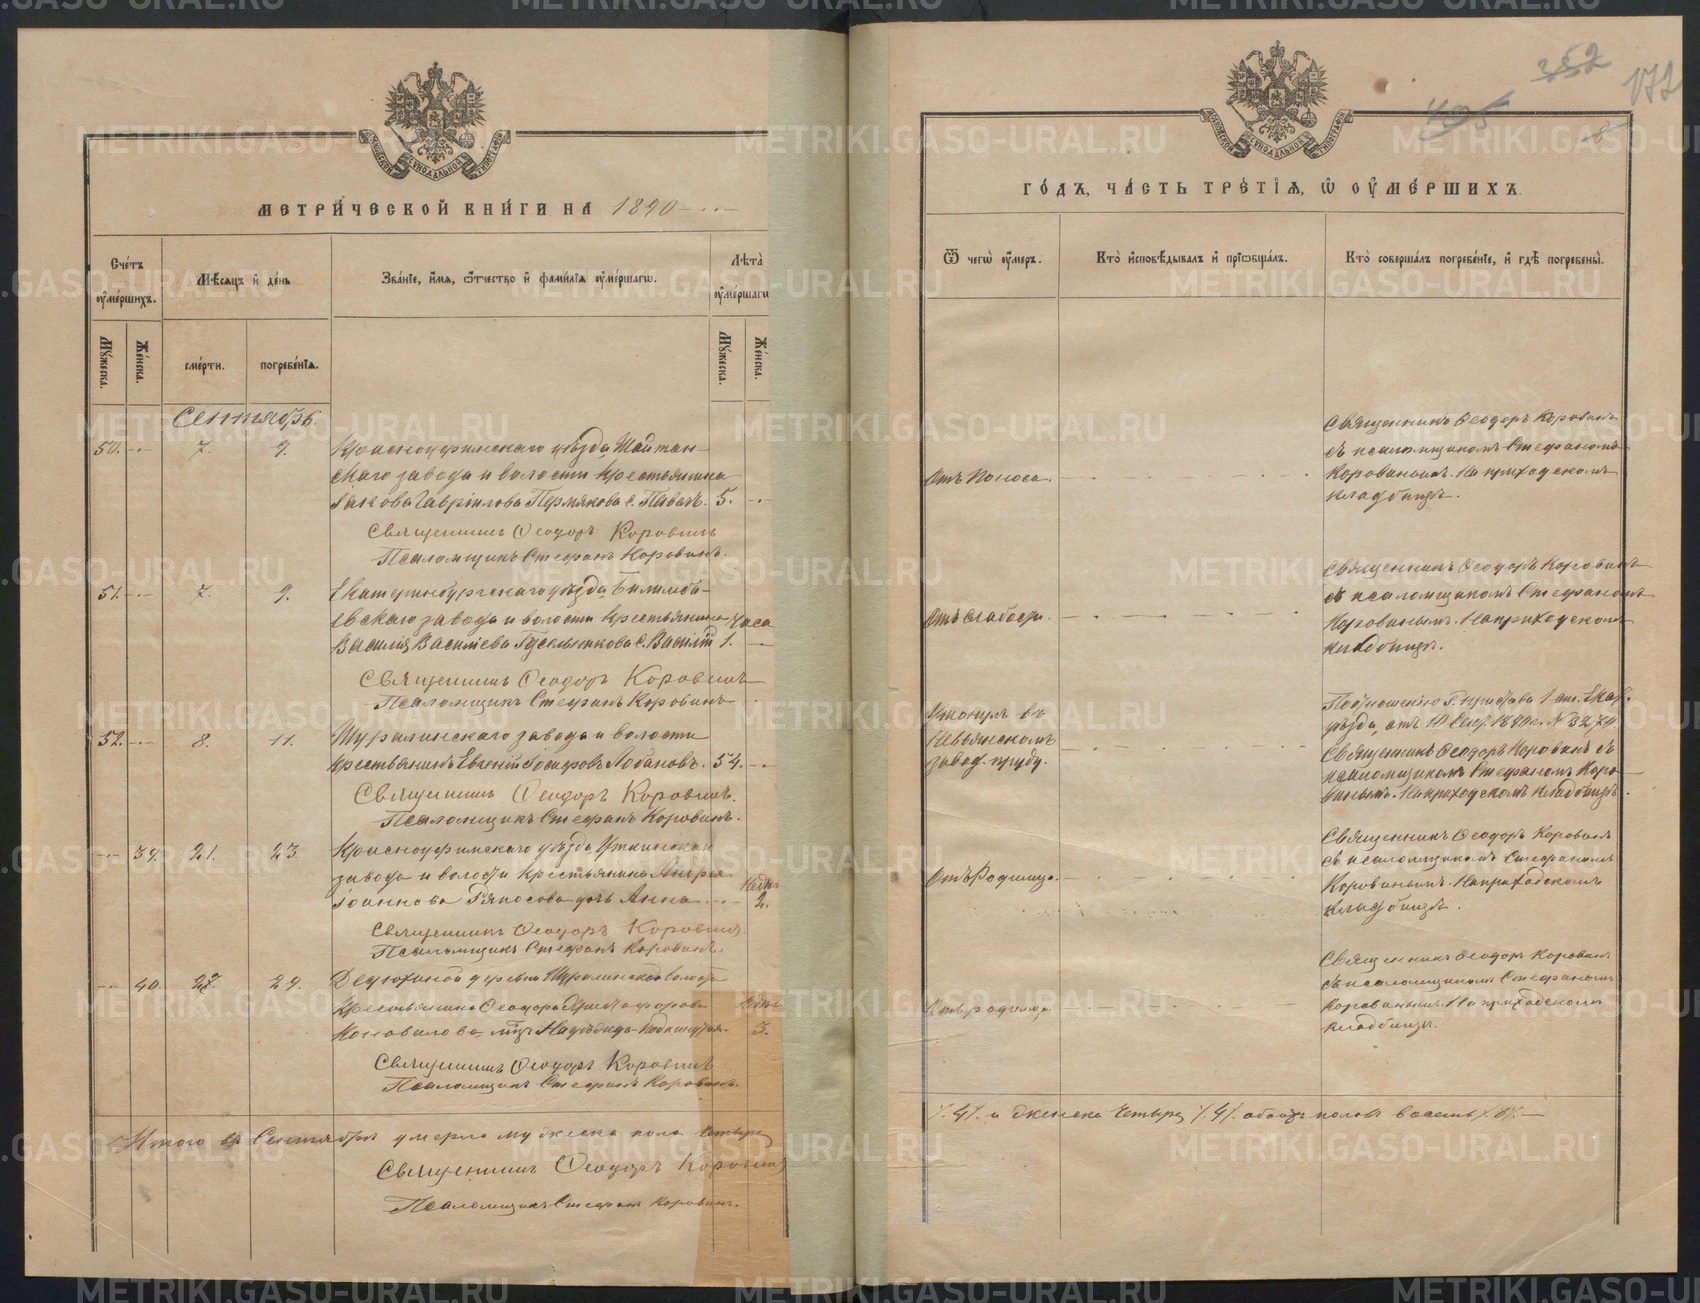 МЕТРИ́ЧЕСКОЙ КНИ́ГИ НА 1890
Сче́тъ ᲂу҆ме́ршихъ.
Мѣ́сяцъ и҆ де́нь
Зва́нїе, и҆́мѧ, ѻ҆́тчество и҆ фами́лїѧ ᲂу҆ме́ршагѡ.
Лѣта̀ ᲂу҆ме́ршагѡ
Мꙋ́жеска.
Же́нска.
сме́рти.
погребе́нїѧ.
Мꙋ́жеска.
Же́нска.
Сентябрь.
50. 7. 9. Красноуфимскаго уѣзда, Шайтан-
скаго завода и волости крестьянина
Іакова Гавріилова Пермякова с. Павелъ. 5.
Священникъ Ѳеодоръ Коровинъ
Псаломщикъ Стефанъ Коровинъ.
51. 7. 9. Екатеринбургскаго уѣзда, Билимба-
евскаго завода и волости крестьянина часа
Василія Васильева с. Василій 1.
Священникъ Ѳеодоръ Коровинъ
Псаломщикъ Стефанъ Коровинъ
52. 8. 11. Шуралинскаго завода и волости
крестьянинъ Евгеній Іосифовъ Лобановъ. 54.
Священникъ Ѳеодоръ Коровинъ.
Псаломщикъ Стефанъ Коровинъ.
39. 21. 23. Красноуфимскаго уѣзда Уткинскаго
завода и волости крестьянина Андрея недѣль
Іоаннова дочь Анна 2.
Священникъ Ѳеодоръ Коровинъ.
Псаломщикъ Стефанъ Коровинъ.
40. 27. 29. деревни Шуралинской волости
крестьянина Ѳеодора
Коновалова Надежда 3.
Священникъ Ѳеодоръ Коровинъ
Псаломщикъ Стефанъ Коровинъ.
Итого въ Сентябрѣ умерло мужеска пола четыре
Священникъ Ѳеодоръ Коровинъ
Псаломщикъ Стефанъ Коровинъ.
352
172
495
ГО́ДЪ, ЧА́СТЬ ТРЕ́ТЇѦ, Ѡ҆ ОУ҆МЕ́РШИХЪ.
Ѿ чегѡ̀ ᲂу҆́меръ.
Кто̀ и҆сповѣ́дывалъ и҆ прїѡбща́лъ.
Кто̀ соверша́лъ погребе́нїе, и҆ гдѣ̀ погребены̀.
Отъ поноса.
Священникъ Ѳеодоръ Коровинъ
съ псаломщикомъ Стефаномъ
Коровинымъ. На приходскомъ
кладбищѣ.
Отъ слабости.
Священникъ Ѳеодоръ Коровинъ
съ псаломщикомъ Стефаномъ
Коровинымъ. На приходскомъ
кладбищѣ.
Утонулъ въ
Невьянскомъ
завод. пруду.
По отношенію Г. пристава 1 ст. Екат.
уѣзда, отъ 10 Сент. 1890 г. № 3270
Священникъ Ѳеодоръ Коровинъ съ
псаломщикомъ Стефаномъ Коро-
винымъ. На приходскомъ кладбищѣ.
Отъ родимца.
Священникъ Ѳеодоръ Коровинъ
съ псаломщикомъ Стефаномъ
Коровинымъ. На приходскомъ
кладбищѣ.
Отъ родимца
Священникъ Ѳеодоръ Коровинъ
съ псаломщикомъ Стефаномъ
Коровинымъ. На приходскомъ
кладбищѣ.
/.4/. и женска четыре /.4/. обоихъ половъ восемь /.8/.
METRIKI.GASO-URAL.RU